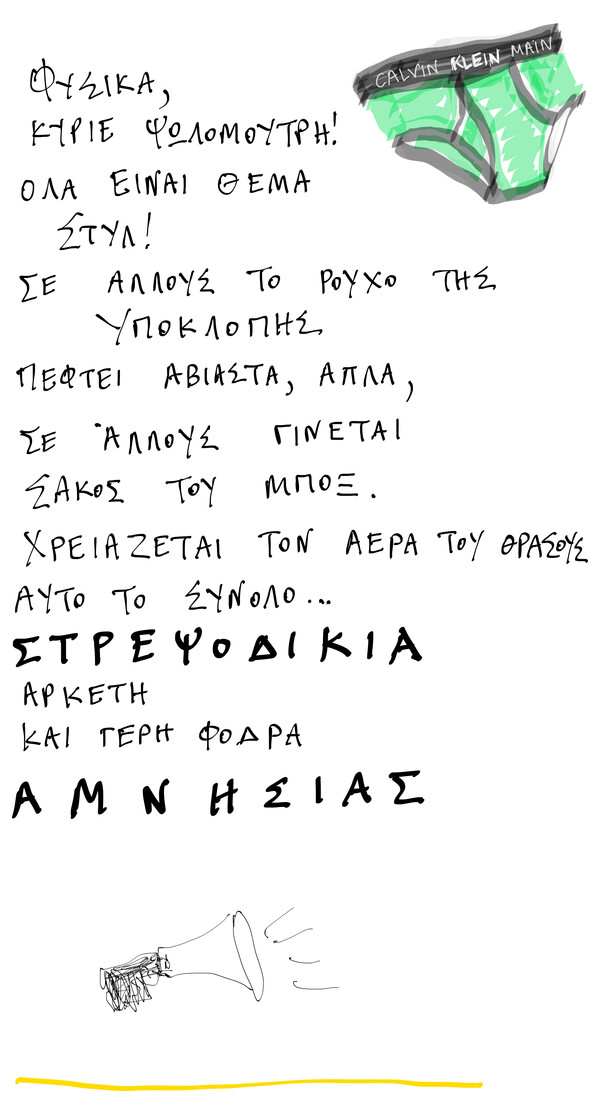 CALVIN KLEIN MAIN
ΦΥΣΙΚΑ,
ΚΥΡΙΕ ΨΩΛΟΜΟΥΤΡΗ!
ΟΛΑ ΕΙΝΑΙ ΘΕΜΑ
ΣΤΥΛ!
ΣΕ ΑΛΛΟΥΣ ΤΟ ΡΟΥΧΟ ΤΗΣ
ΥΠΟΚΛΟΠΗΣ
ΠΕΦΤΕΙ ΑΒΙΑΣΤΑ, ΑΠΛΑ,
ΣΕ ΆΛΛΟΥΣ ΓΙΝΕΤΑΙ
ΣΑΚΟΣ ΤΟΥ ΜΠΟΞ.
ΧΡΕΙΑΖΕΤΑΙ ΤΟΝ ΑΕΡΑ ΤΟΥ ΘΡΑΣΟΥΣ
ΑΥΤΟ ΤΟ ΣΥΝΟΛΟ...
ΣΤΡΕΨΟΔΙΚΙΑ
ΑΡΚΕΤΗ
ΚΑΙ ΓΕΡΗ ΦΟΔΡΑ
ΑΜΝΗΣΙΑΣ